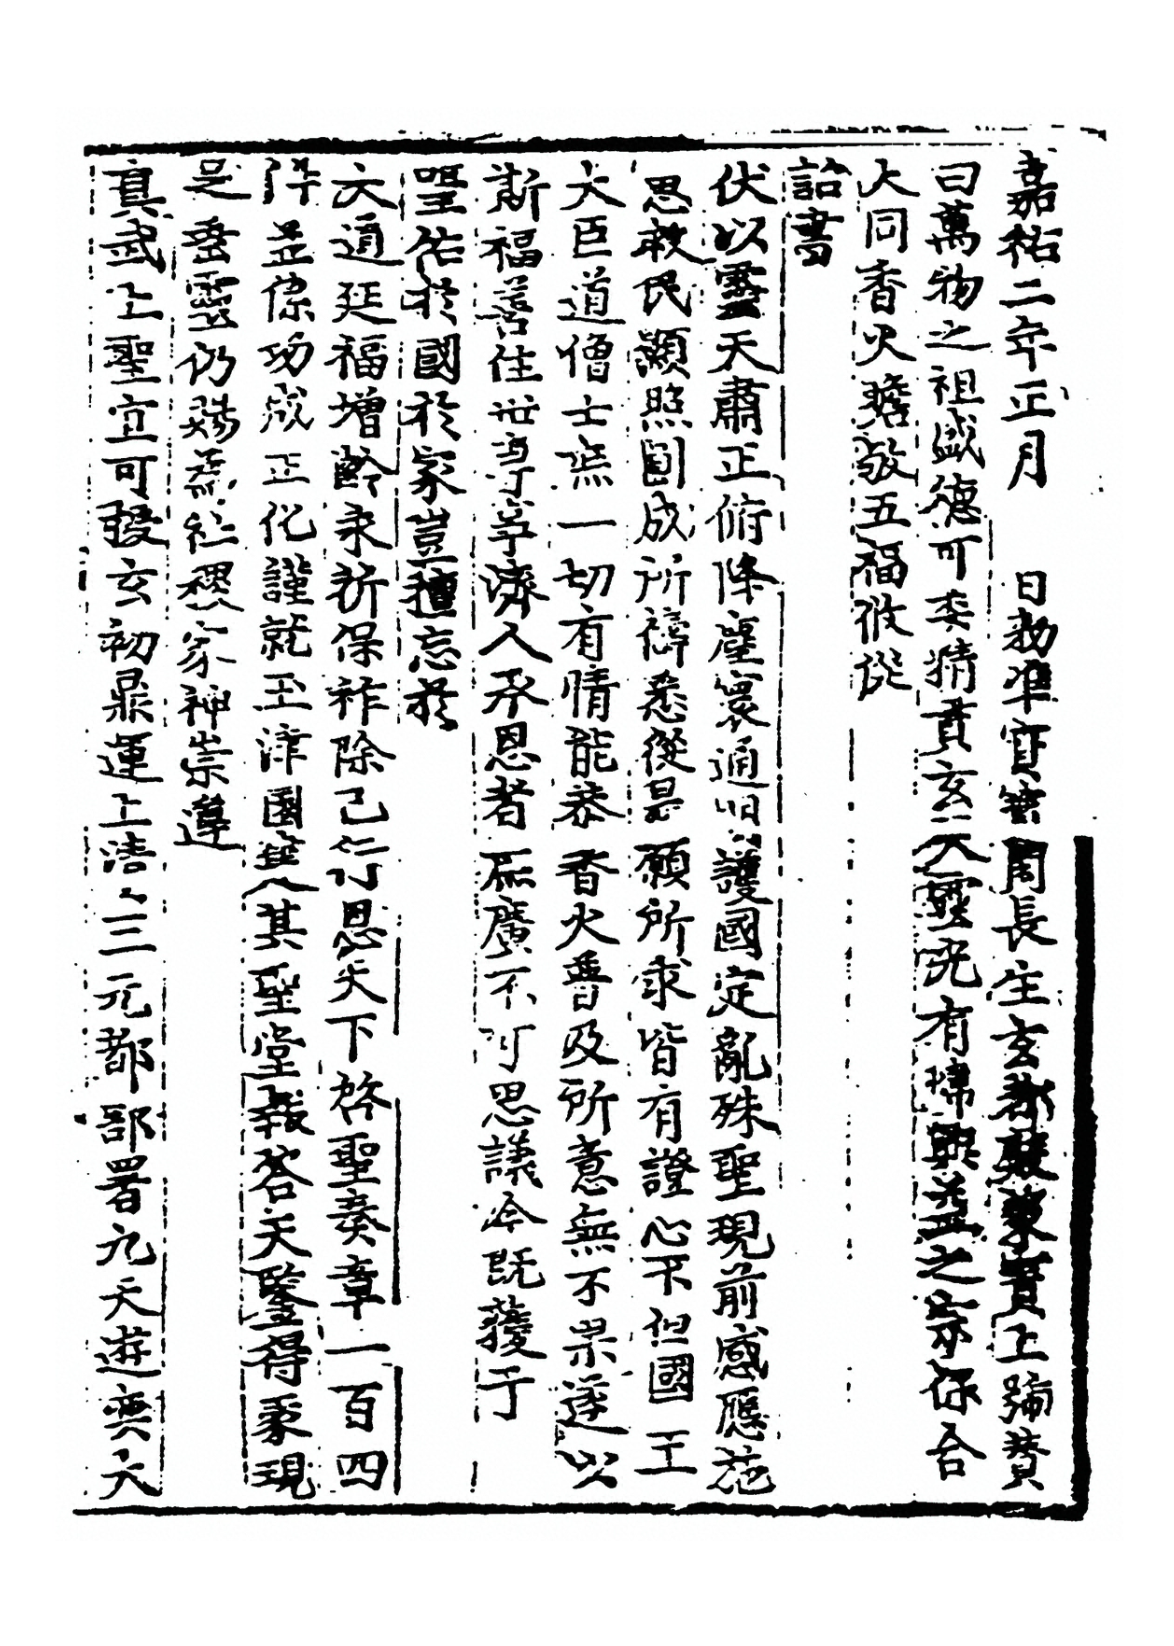 嘉祐二年正月　日勑准寶雲閣長生玄都殿掌賁上號贊
曰萬物之祖盛德可委精貫玄天靈光有煒興益之宗保合
大同香火瞻敬五福攸從
詔書
伏以靈天肅正俯降塵寰通明護國定亂殊聖現前感應慈
恩救民顯照圓成所禱悉從是願所求皆有證心不但國王
大臣道僧士庶一切有情能恭香火普及所意無不崇遂以
斯福善住世專爭濟人承恩者廣不可思議今既獲于
聖佑於國於家豈擅忘於
大道延福增齡永祈保祚除已行恩天下啓聖奏章一百四
并並係功成正化謹就玉津園其聖堂報答天鑒得家現
是垂靈仍賜為社稷家神崇遵
真武上聖宜可授玄初鼎運上清三元都部署九天遊奕大